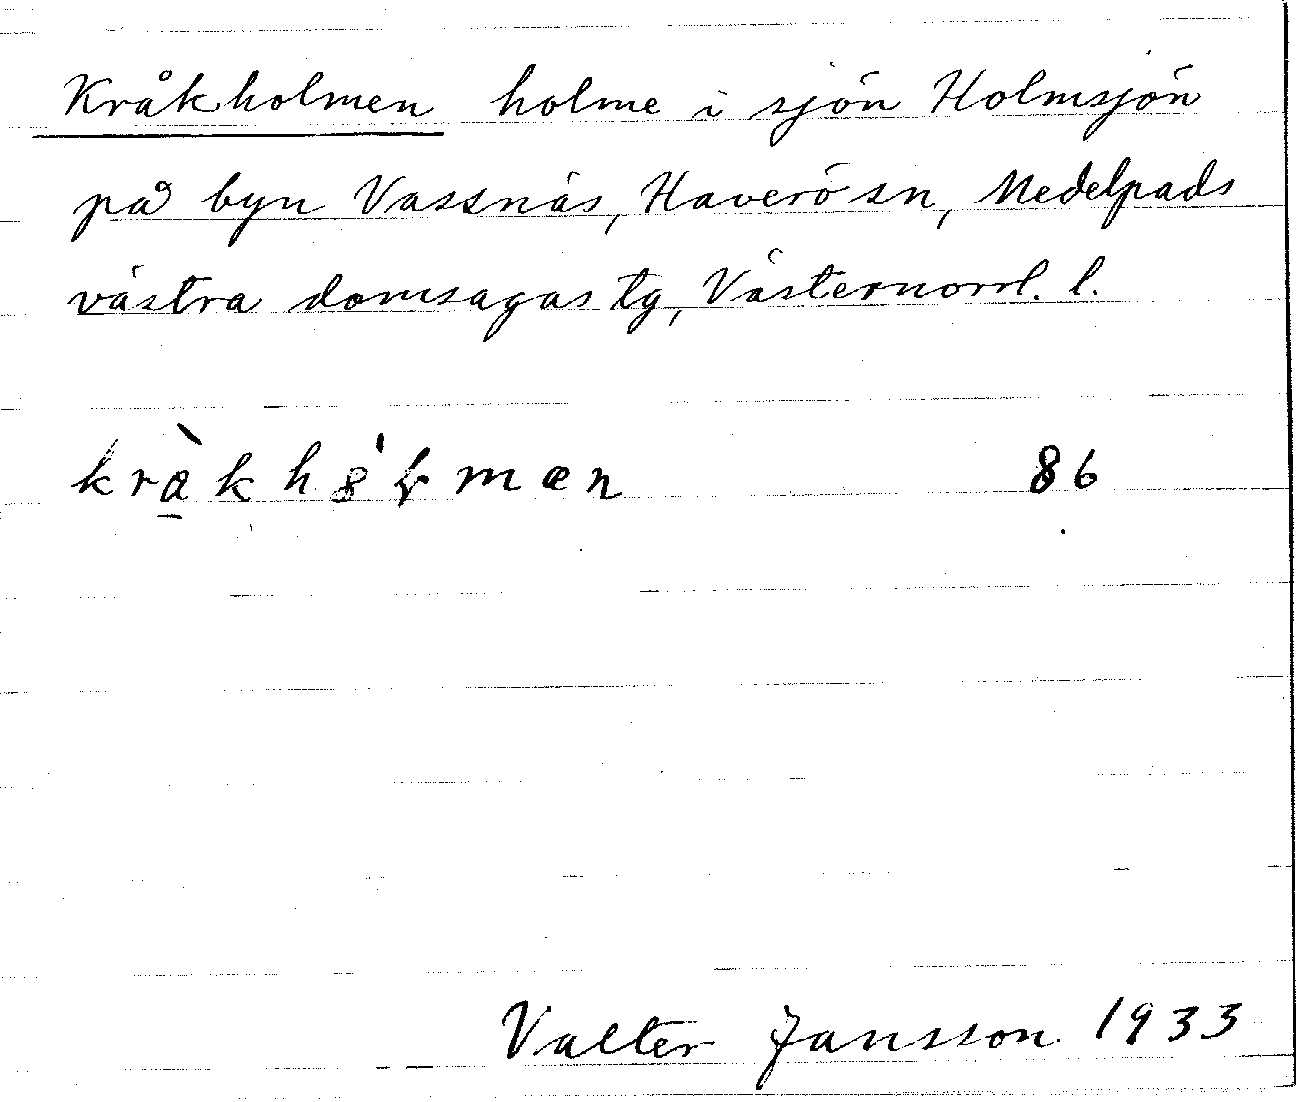 Kråkholmen holme i sjön Holmsjön
på byn Vassnäs, Haverö sn, Medelpads
västra domsagas tg, Västernorrl. l.
86
Valter Jansson 1933